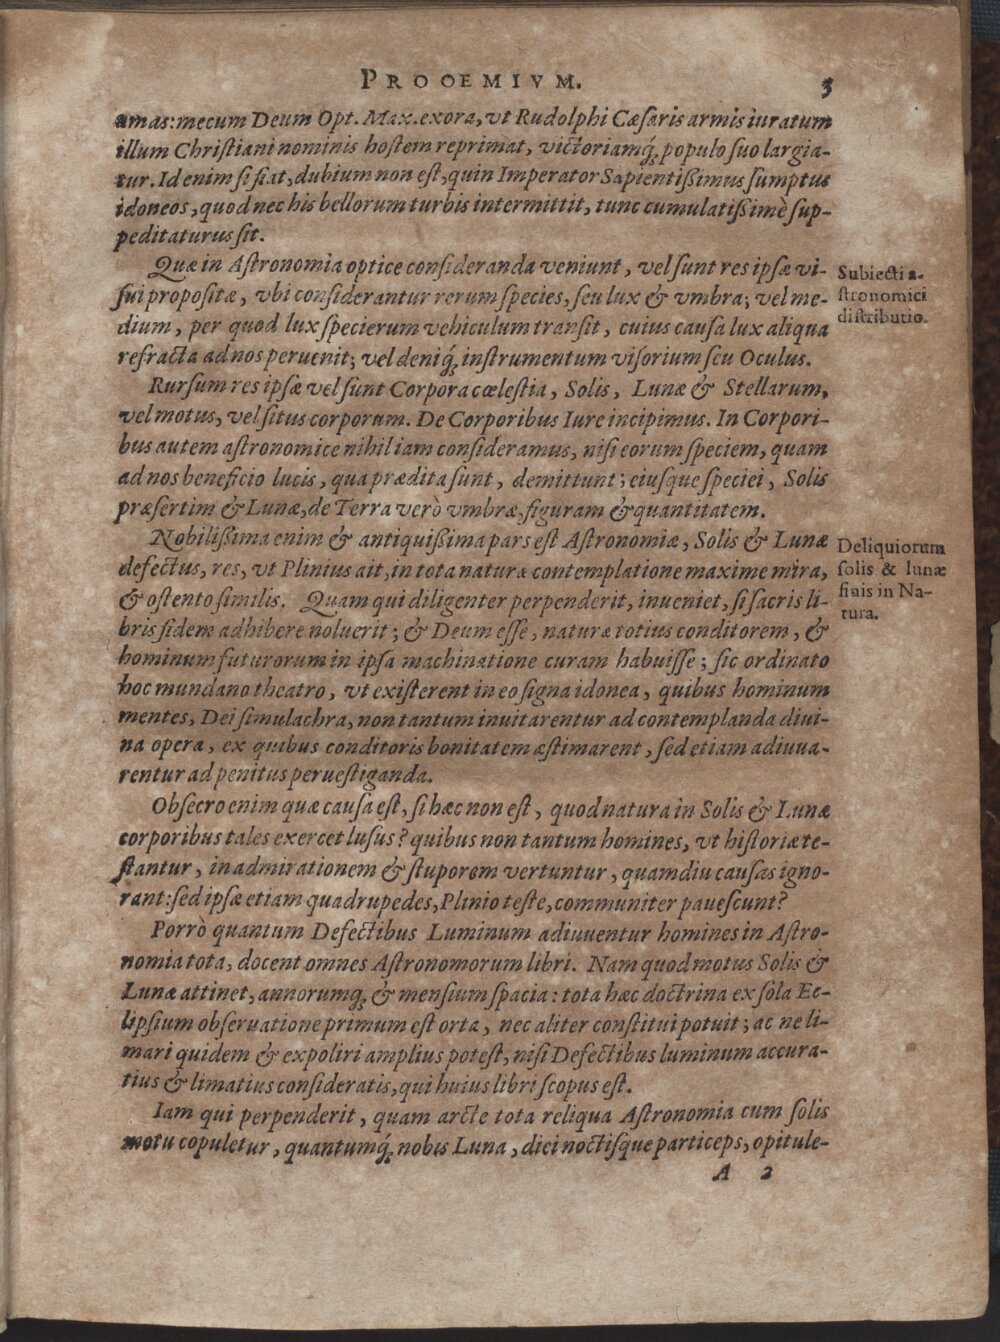 PROOEMIVM. 3
amas: mecum Deum Opt. Max. exora, vt Rudolphi Cæsaris armis iuratum
illum Christiani nominis hostem reprimat, victoriamq́; populo suo largia-
tur. Id enim si fiat, dubium non est, quin Imperator Sapientißimus sumptus
idoneos, quod nec his bellorum turbis intermittit, tunc cumulatißimè sup-
peditaturus sit.
Quæ in Astronomia optice consideranda veniunt, vel sunt res ipsæ vi-
sui propositæ, vbi considerantur rerum species, seu lux & vmbra; vel me-
dium, per quod lux specierum vehiculum transit, cuius causa lux aliqua
refracta ad nos peruenit; vel deniq́; instrumentum visorium seu Oculus.
Subiecti a-
stronomici
distributio.
Rursum res ipsæ vel sunt Corpora cœlestia, Solis, Lunæ & Stellarum,
vel motus, vel situs corporum. De Corporibus Iure incipimus. In Corpori-
bus autem astronomice nihil iam consideramus, nisi eorum speciem, quam
ad nos beneficio lucis, qua prædita sunt, demittunt; eiusque speciei, Solis
præsertim & Lunæ, de Terra verò vmbræ, figuram & quantitatem.
Nobilißima enim & antiquißima pars est Astronomiæ, Solis & Lunæ
defectus, res, vt Plinius ait, in tota naturæ contemplatione maxime mira,
& ostento similis. Quam qui diligenter perpenderit, inueniet, si sacris li-
bris fidem adhibere noluerit; & Deum esse, naturæ totius conditorem, &
hominum futurorum in ipsa machinatione curam habuisse; sic ordinato
hoc mundano theatro, vt existerent in eo signa idonea, quibus hominum
mentes, Dei simulachra, non tantum inuitarentur ad contemplanda diui-
na opera, ex quibus conditoris bonitatem æstimarent, sed etiam adiuua-
rentur ad penitus peruestiganda.
Deliquiorum
solis & lunæ
finis in Na-
tura.
Obsecro enim quæ causa est, si hæc non est, quod natura in Solis & Lunæ
corporibus tales exercet lusus? quibus non tantum homines, vt historiæ te-
stantur, in admirationem & stuporem vertuntur, quamdiu causas igno-
rant: sed ipsæ etiam quadrupedes, Plinio teste, communiter pauescunt?
Porrò quantum Defectibus Luminum adiuuentur homines in Astro-
nomia tota, docent omnes Astronomorum libri. Nam quod motus Solis &
Lunæ attinet, annorumq; & mensium spacia: tota hæc doctrina ex sola Ec-
lipsium obseruatione primum est orta, nec aliter constitui potuit; ac ne li-
mari quidem & expoliri amplius potest, nisi Defectibus luminum accura-
tius & limatius consideratis, qui huius libri scopus est.
Iam qui perpenderit, quam arcte tota reliqua Astronomia cum solis
motu copuletur, quantumq́; nobis Luna, diei noctisque particeps, opitule-
A 2